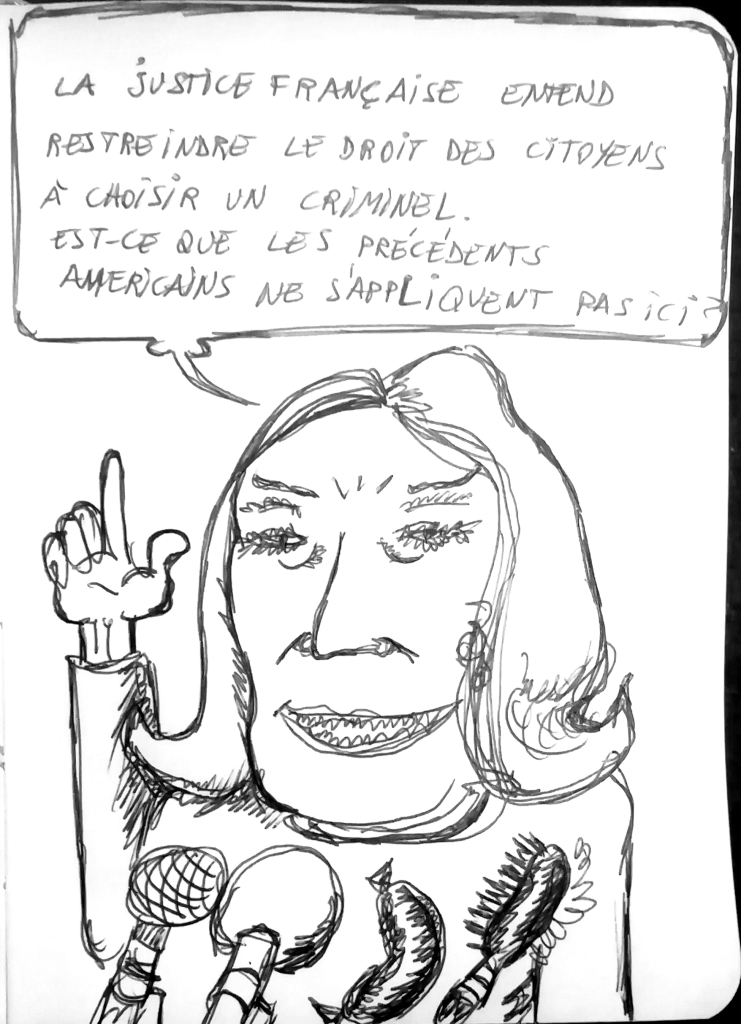 LA JUSTICE FRANÇAISE ENTEND
RESTREINDRE LE DROIT DES CITOYENS
À CHOISIR UN CRIMINEL.
EST-CE QUE LES PRÉCÉDENTS
AMERICAINS NE S'APPLIQUENT PAS ICI?